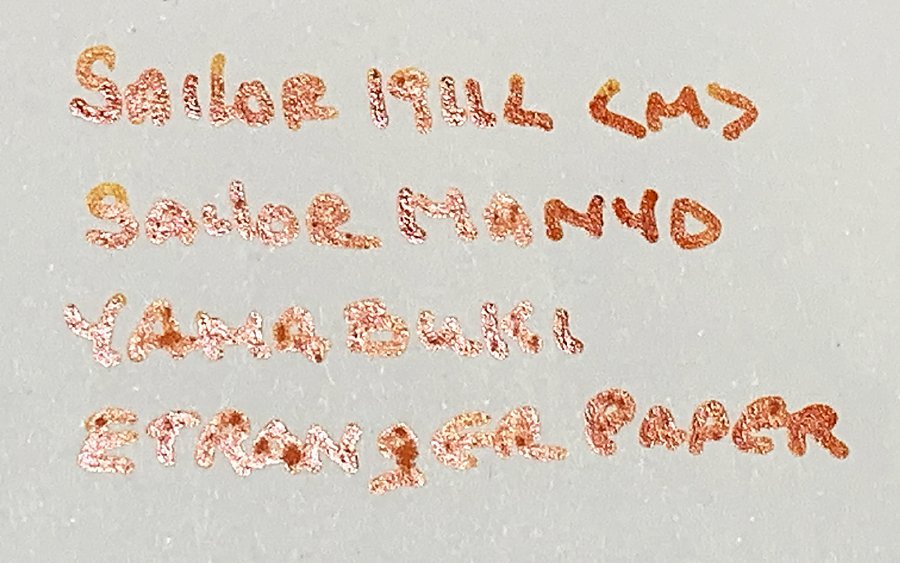 SAilOR 1911L <M>
SailOR MANYO
YAMABUKI
ETRANgER PAPER